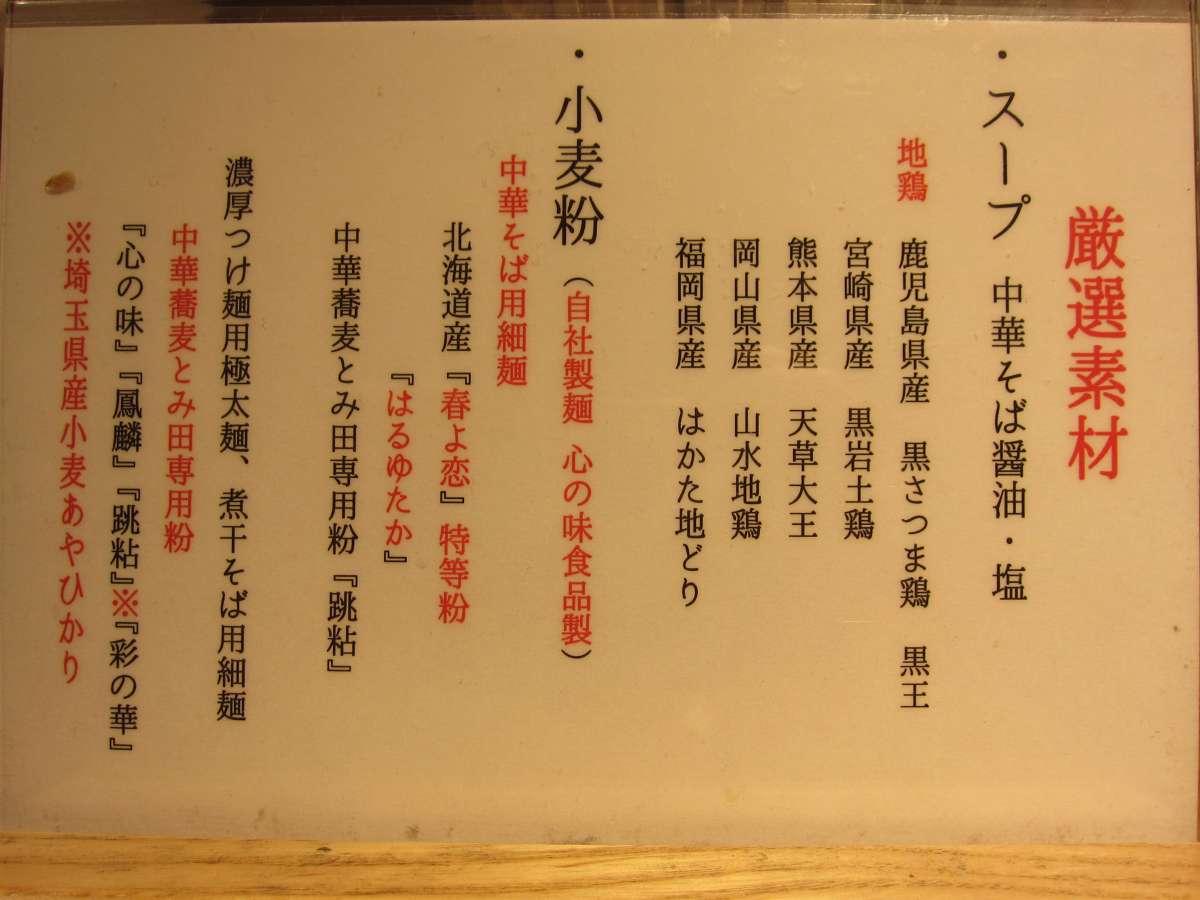 厳選素材
・スープ 中華そば醤油・塩
地鶏 鹿児島県産 黒さつま鶏 黒王
宮崎県産 黒岩土鶏
熊本県産 天草大王
岡山県産 山水地鶏
福岡県産 はかた地どり
・小麦粉（自社製麺 心の味食品製）
中華そば用細麺
北海道産『春よ恋』特等粉
『はるゆたか』
中華蕎麦とみ田専用粉『跳粘』
濃厚つけ麺用極太麺、煮干そば用細麺
中華蕎麦とみ田専用粉
『心の味』『鳳麟』『跳粘』※『彩の華』
※埼玉県産小麦あやひかり